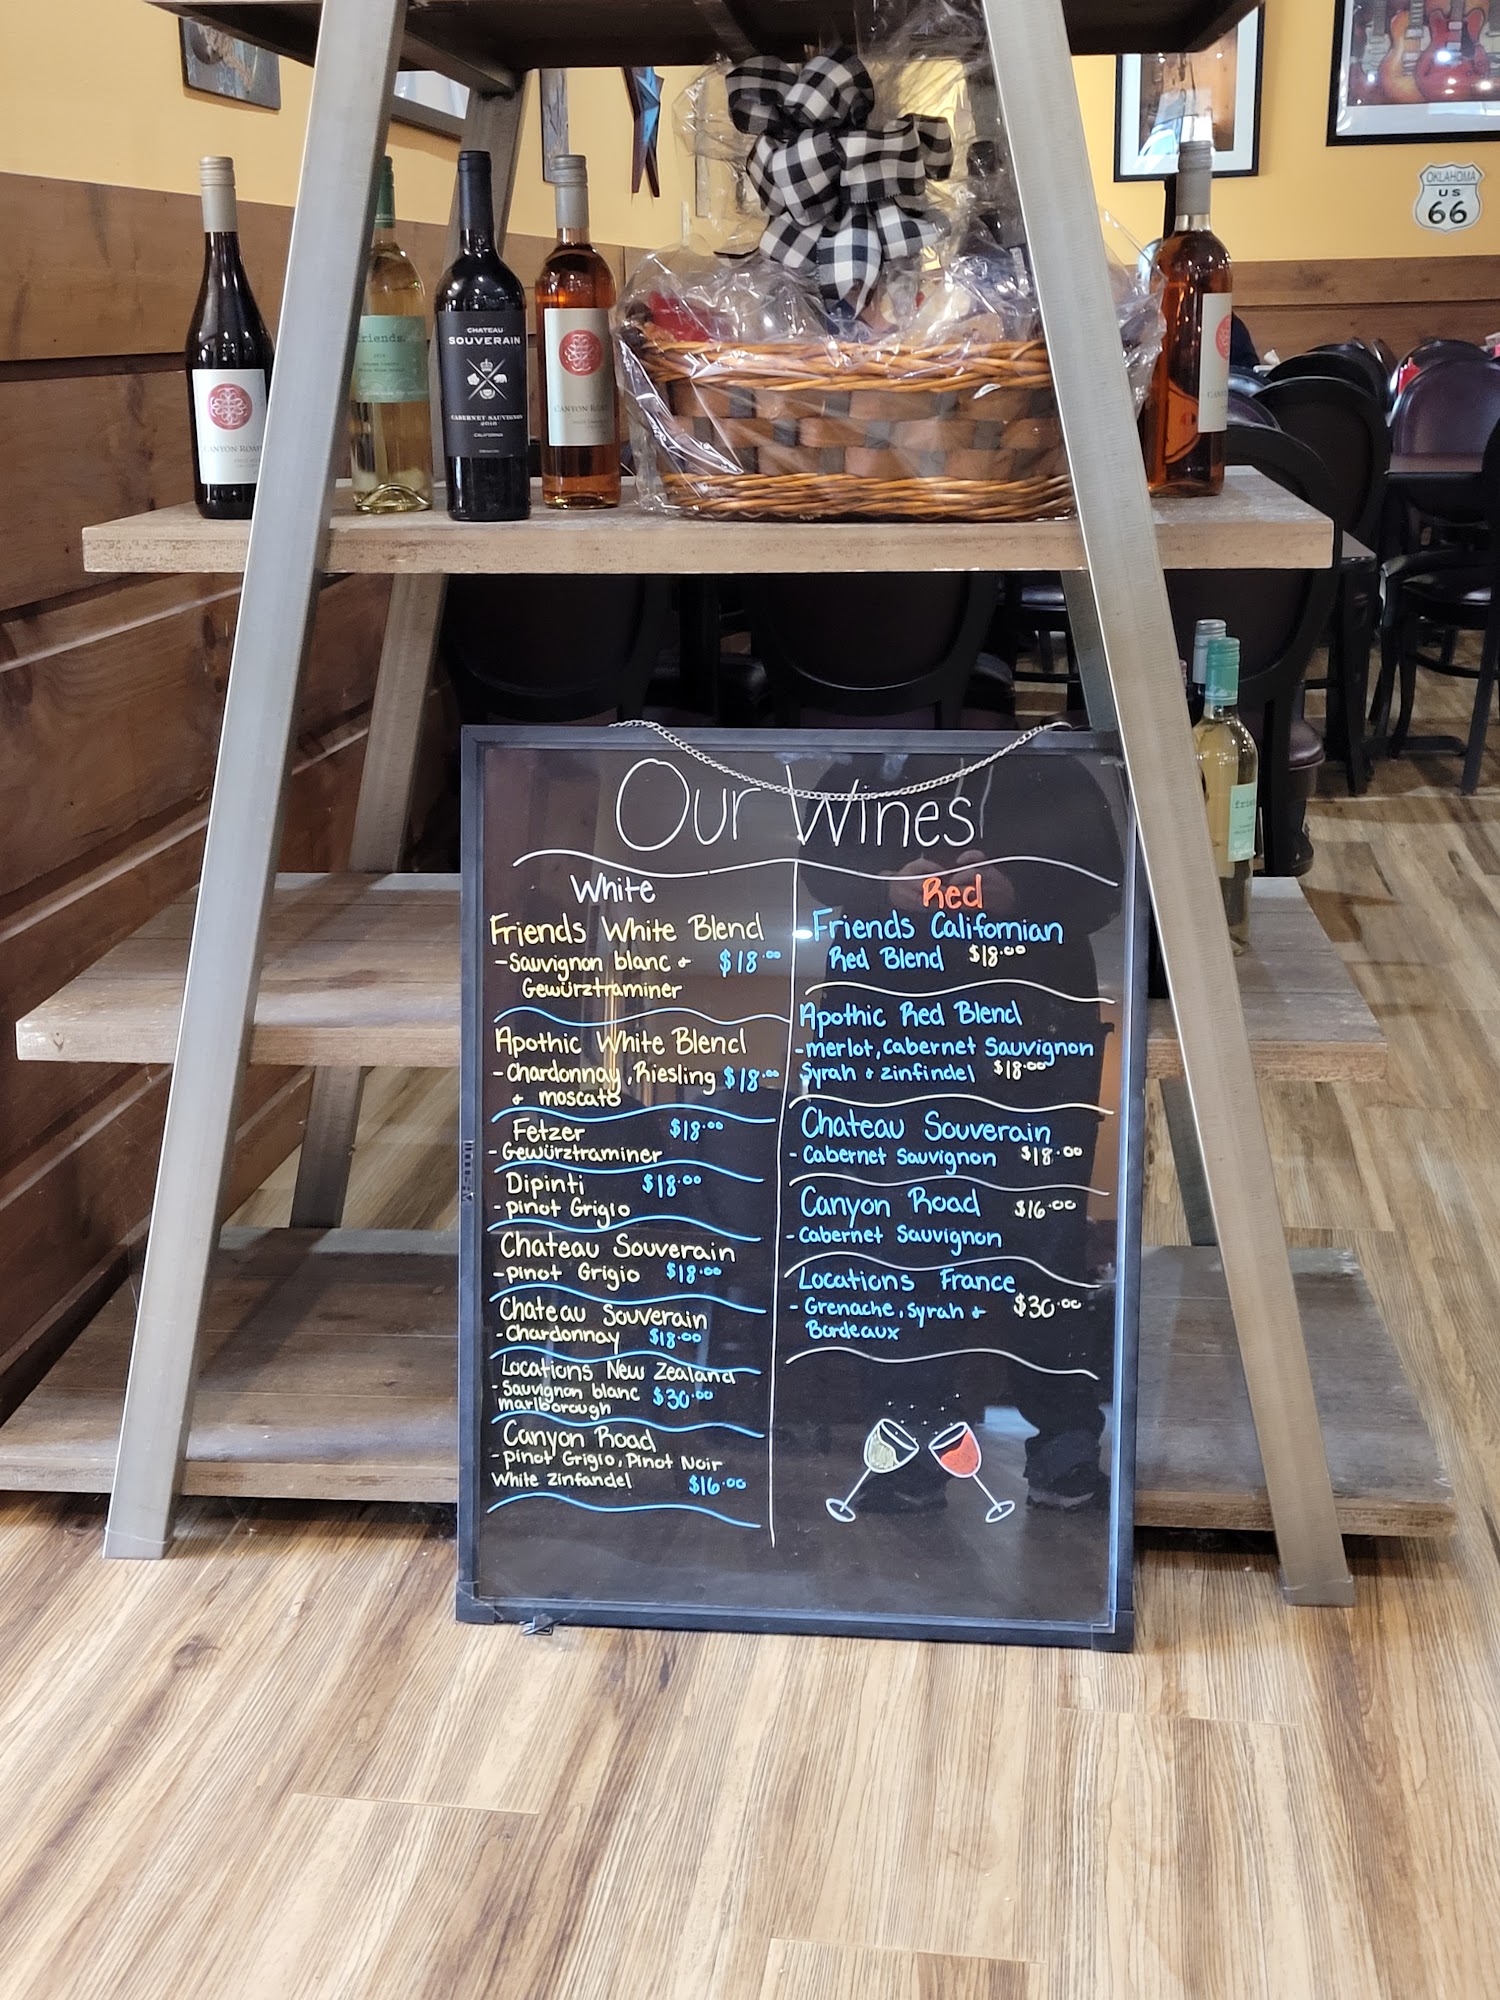 OKLAHOMA
US
66
friends.
CHATEAU
SOUVERAIN
CABERNET SAUVIGNON
2018
CALIFORNIA
CANYON ROAD
CANYON ROAD
CANYON
Our Wines
White
Friends White Blend
-Sauvignon blanc + $18.00
Gewürztraminer
Apothic White Blend
-Chardonnay, Riesling $18.00
+ moscato
Fetzer $18.00
-Gewürztraminer
Dipinti $18.00
-pinot Grigio
Chateau Souverain
-pinot Grigio $18.00
Chateau Souverain
-Chardonnay $18.00
Locations New Zealand
-Sauvignon blanc $30.00
marlborough
Canyon Road
-pinot Grigio, Pinot Noir
White zinfandel $16.00
Red
Friends Californian
Red Blend $18.00
Apothic Red Blend
-merlot, cabernet Sauvignon
Syrah + zinfindel $18.00
Chateau Souverain
-Cabernet Sauvignon $18.00
Canyon Road $16.00
-Cabernet Sauvignon
Locations France
-Grenache, syrah + $30.00
Bordeaux